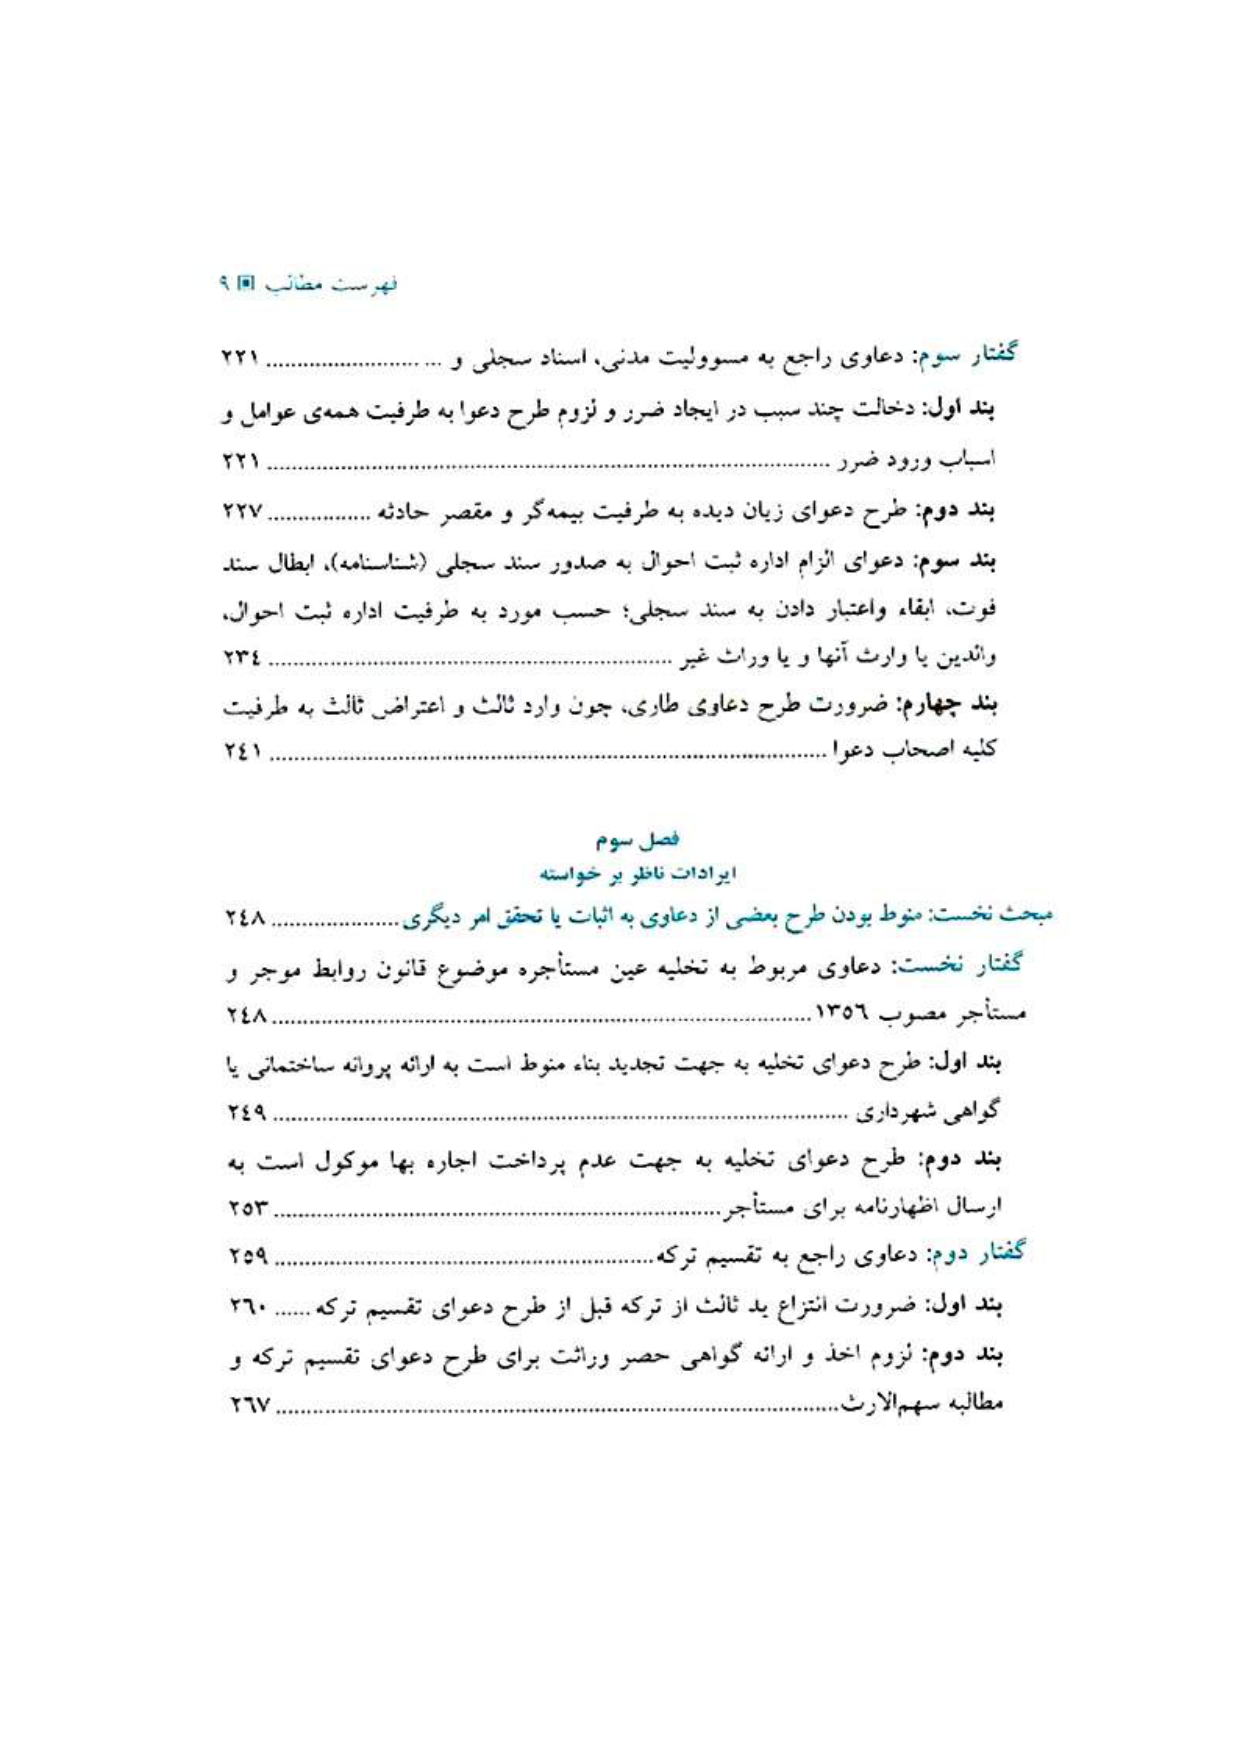 فهرست مطالب ▣ ۹
گفتار سوم: دعاوی راجع به مسوولیت مدنی، اسناد سجلی و ... ......................... ۲۲۱
بند اول: دخالت چند سبب در ایجاد ضرر و لزوم طرح دعوا به طرفیت همه‌ی عوامل و
اسباب ورود ضرر ............................................................ ۲۲۱
بند دوم: طرح دعوای زیان دیده به طرفیت بیمه‌گر و مقصر حادثه ................. ۲۲۷
بند سوم: دعوای الزام اداره ثبت احوال به صدور سند سجلی (شناسنامه)، ابطال سند
فوت، ابقاء واعتبار دادن به سند سجلی؛ حسب مورد به طرفیت اداره ثبت احوال،
والدین یا وارث آنها و یا وراث غیر ............................................ ۲۳٤
بند چهارم: ضرورت طرح دعاوی طاری، چون وارد ثالث و اعتراض ثالث به طرفیت
کلیه اصحاب دعوا ............................................................ ۲٤۱
فصل سوم
ایرادات ناظر بر خواسته
مبحث نخست: منوط بودن طرح بعضی از دعاوی به اثبات یا تحقق امر دیگری .................... ۲٤۸
گفتار نخست: دعاوی مربوط به تخلیه عین مستأجره موضوع قانون روابط موجر و
مستأجر مصوب ۱۳۵٦ ............................................................ ۲٤۸
بند اول: طرح دعوای تخلیه به جهت تجدید بناء منوط است به ارائه پروانه ساختمانی یا
گواهی شهرداری ............................................................ ۲٤۹
بند دوم: طرح دعوای تخلیه به جهت عدم پرداخت اجاره بها موکول است به
ارسال اظهارنامه برای مستأجر.................................................. ۲۵۳
گفتار دوم: دعاوی راجع به تقسیم ترکه.......................................... ۲۵۹
بند اول: ضرورت انتزاع ید ثالث از ترکه قبل از طرح دعوای تقسیم ترکه ...... ۲٦۰
بند دوم: لزوم اخذ و ارائه گواهی حصر وراثت برای طرح دعوای تقسیم ترکه و
مطالبه سهم‌الارث............................................................ ۲٦۷